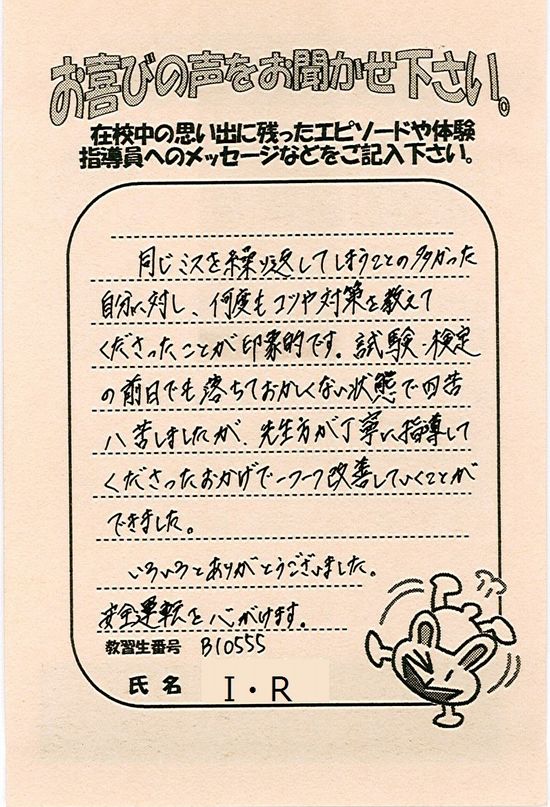 お喜びの声をお聞かせ下さい。
在校中の思い出に残ったエピソードや体験
指導員へのメッセージなどをご記入下さい。
同じミスを繰り返してしまうことの多かった
自分に対し、何度もコツや対策を教えて
くださったことが印象的です。試験・検定
の前日でも落ちておかしくない状態で四苦
八苦しましたが、先生方が丁寧に指導して
くださったおかげで一つ一つ改善していくことが
できました。
いろいろとありがとうございました。
安全運転を心がけます。
教習生番号 B10555
氏名 I・R